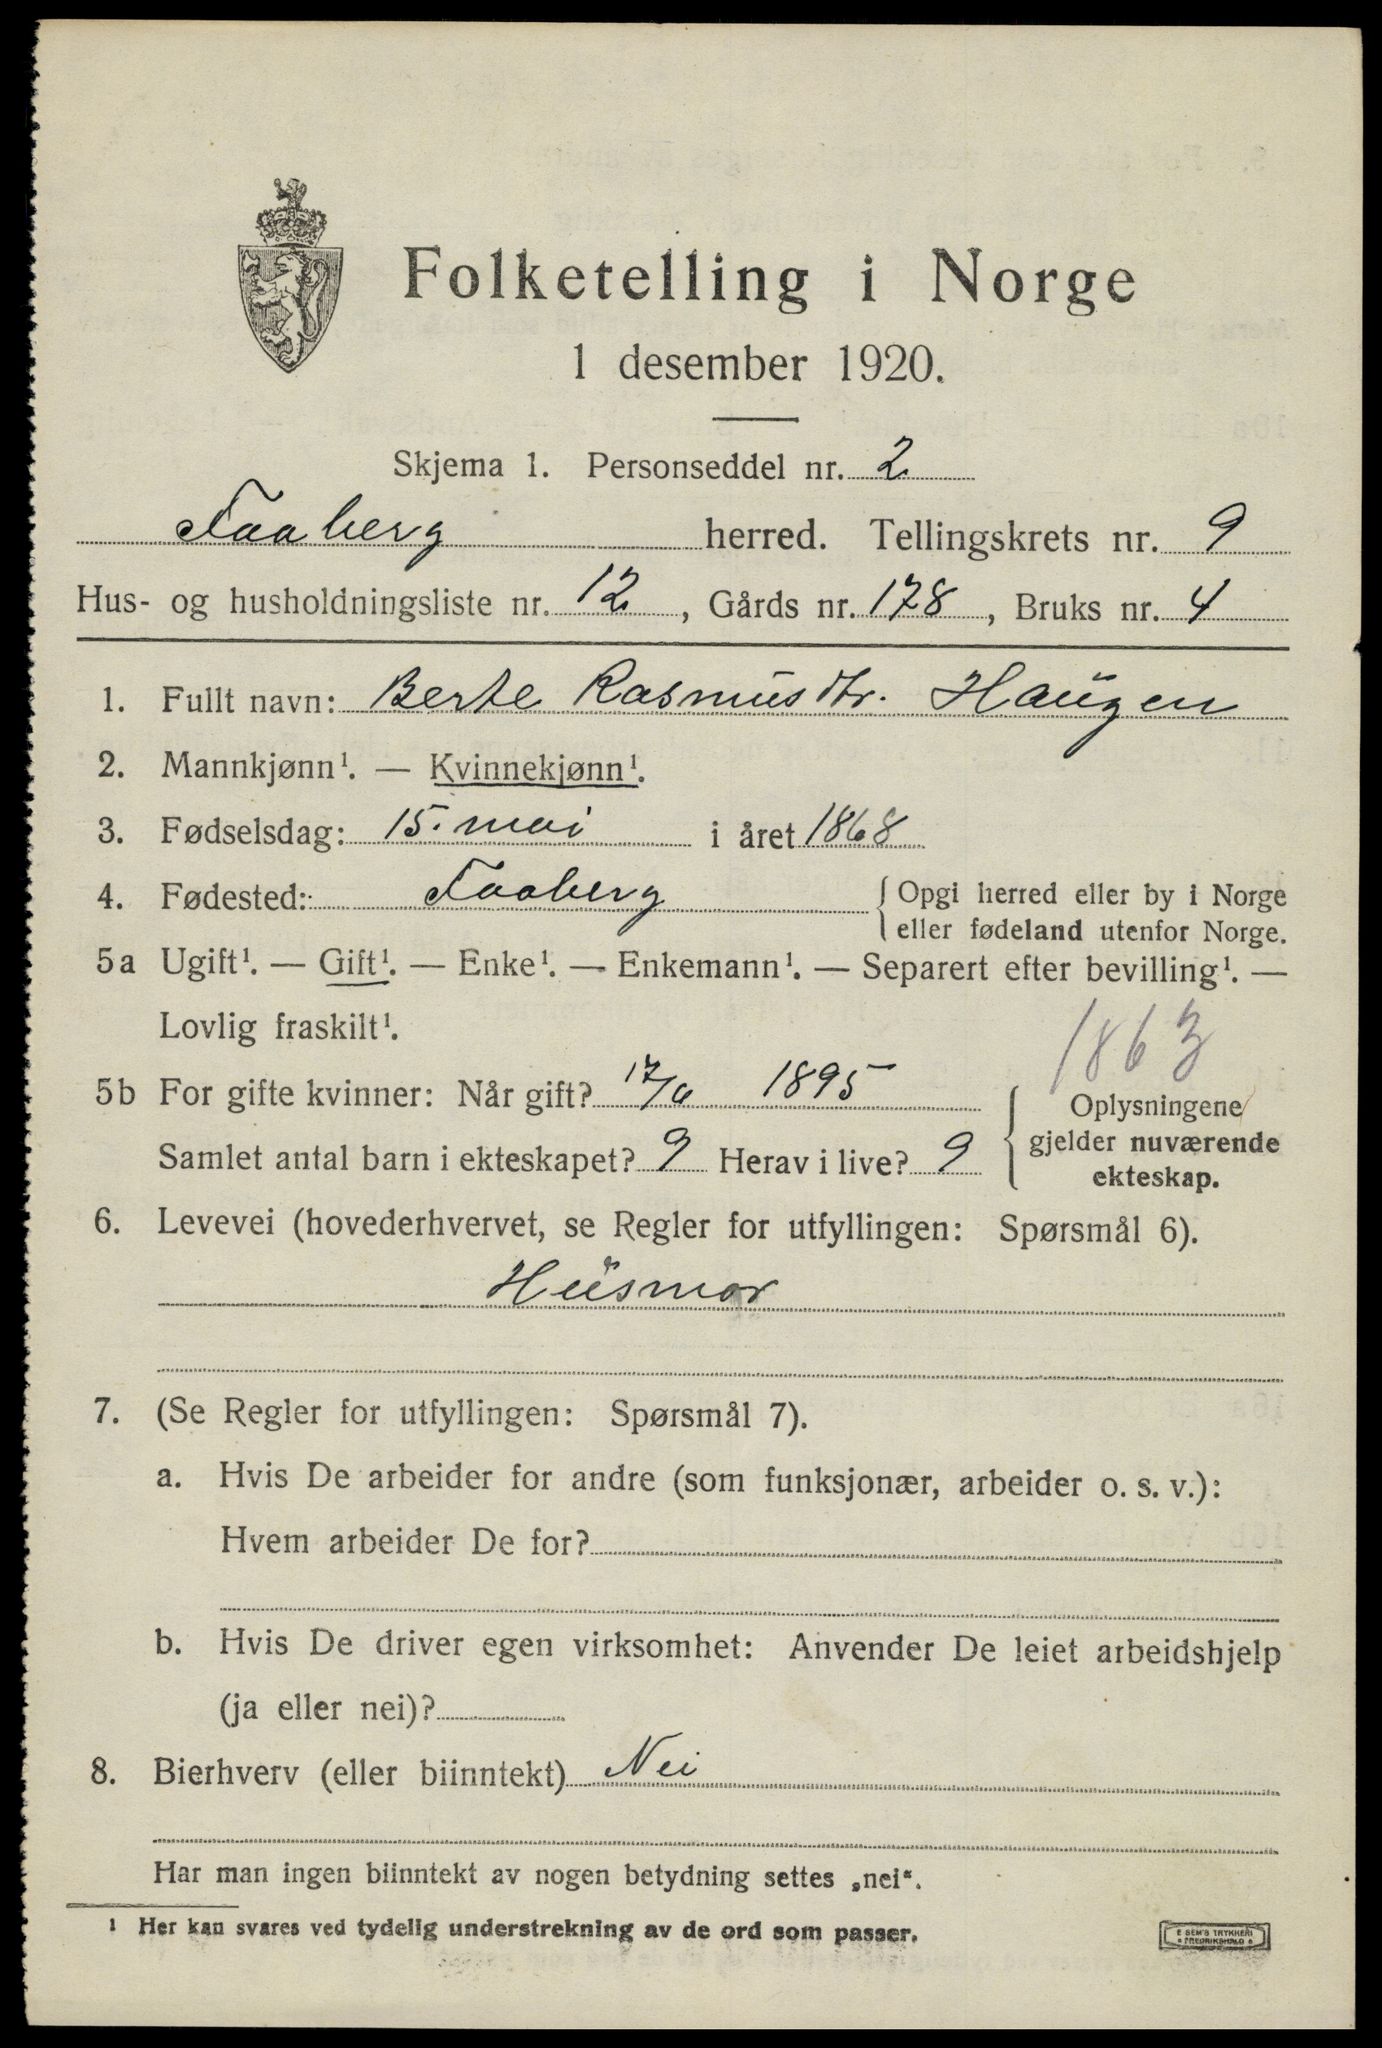 Folketelling i Norge
1 desember 1920.
Skjema 1. Personseddel nr. 2
Faaberg herred. Tellingskrets nr. 9
Hus- og husholdningsliste nr. 12, Gårds nr. 178, Bruks nr. 4
1. Fullt navn: Berte Rasmusdtr. Haugen
2. Mannkjønn¹. — Kvinnekjønn¹.
3. Fødselsdag: 15. mai i året 1868
4. Fødested: Faaberg { Opgi herred eller by i Norge
eller fødeland utenfor Norge.
5a Ugift¹. — Gift¹. — Enke¹. — Enkemann¹. — Separert efter bevilling¹. —
Lovlig fraskilt¹.
1863
5b For gifte kvinner: Når gift? 17/6 1895
Samlet antal barn i ekteskapet? 9 Herav i live? 9
Oplysningene
gjelder nuværende
ekteskap.
6. Levevei (hovederhvervet, se Regler for utfyllingen: Spørsmål 6).
Husmor
7. (Se Regler for utfyllingen: Spørsmål 7).
a. Hvis De arbeider for andre (som funksjonær, arbeider o. s. v.):
Hvem arbeider De for?
b. Hvis De driver egen virksomhet: Anvender De leiet arbeidshjelp
(ja eller nei)?
8. Bierhverv (eller biinntekt) Nei
Har man ingen biinntekt av nogen betydning settes „nei“.
¹ Her kan svares ved tydelig understrekning av de ord som passer.
E SEM'S TRYKKERI
FREDRIKSHALD